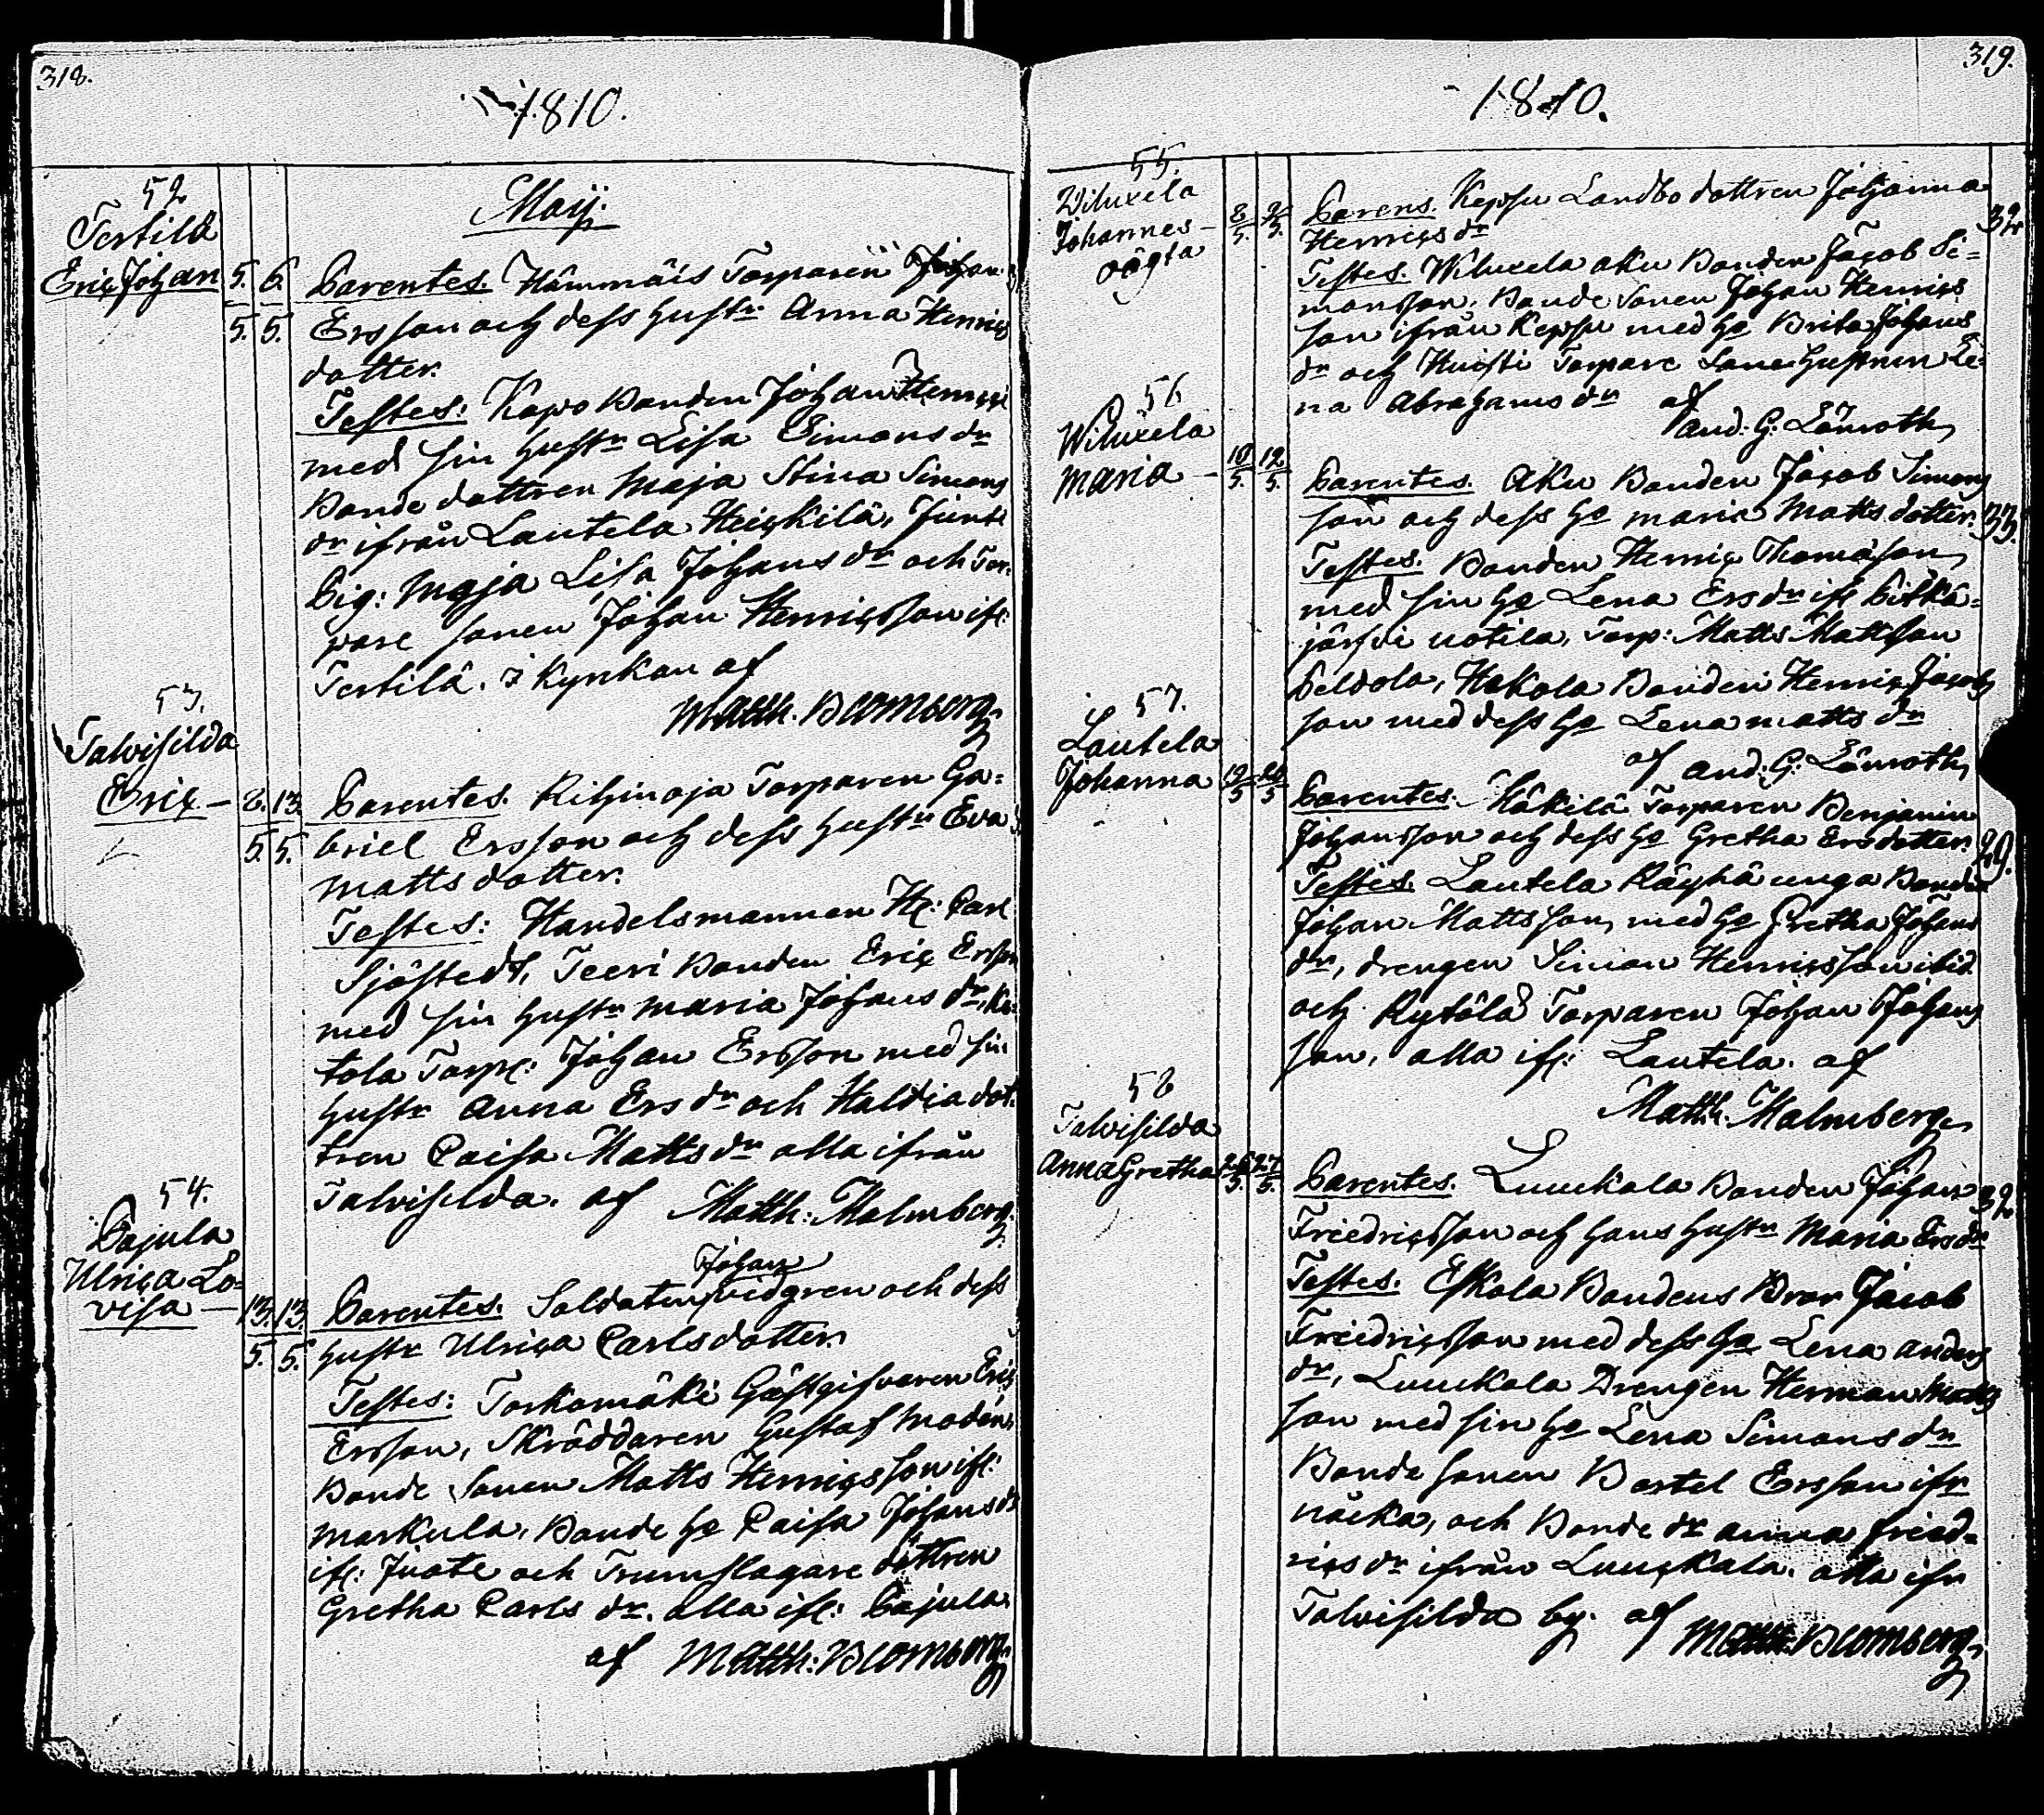 318.
1810.
Maij.
52
Tertilä
Eric Johan 5. 6.
5. 5.
Parentes. Hämmäis Torparen Johan
Ersson och dess hustr Anna Henrics
dotter.
Testes: Kapo Bonden Johan Henricss
med sin hustr Lisa Simons dr
Bonde dottren Maja Stina Simons
dr ifrån Lautela Heickilä, Junt
Pig: Maja Lisa Johans dr och Tor-
pare sonen Johan Henricsson ifr:
Tertilä. i Kyrkan af
Matth. Blomberg
53.
Talvisilda
Eric – 8. 13.
5. 5.
Parentes. Rihinoja Torparen Ga=
briel Ersson och dess hustru Eva
Mattsdotter.
Testes: Handelsmannen Hr: Carl
Sjöstedt, Teeri Bonden Eric Ersson
med sin hustr Maria Johans dr, Ka-
tola Torpr: Johan Ersson med sin
hustr Anna Ers dr och Haldia dot-
tren Caisa Matts dr alla ifrån
Talvisilda. af Matth: Malmberg.
54.
Pajula
Ulrica Lo=
visa – 13. 13.
5. 5.
Johan
Parentes. Soldaten Vidgren och dess
hustr Ulrica Carlsdotter.
Testes: Torkomäki Gästgifvaren Eric
Ersson, Skräddaren Gustaf Modén,
Bonde Sonen Matts Henricsson ifr:
Markula, Bonde ho Caisa Johans dr
ifr: Juote och Trumslagare dottren
Gretha Carls dr. alla ifr: Pajula.
af Matth: Blomberg
319.
1810.
55.
Viluxela
Johannes –
oägta
8 9
5. 5.
Parens. Kepsu Landbo dottren Johanna
Henrics dr 32
Testes. Viluxela Aku Bonden Jacob Si=
monsson, Bonde Sonen Johan Henrics
son ifrån Kepsu med ho Brita Johans
dr och Huisti Torpare Sone hustrun Le-
na Abrahams dr af
And: G: Lönroth
56
Viluxela
Maria – 10 12
5. 5.
Parentes. Aku Bonden Jacob Simons
son och dess ho Maria Matts dotter. 33.
Testes. Bonden Henric Thomasson
med sin ho Lena Ers dr ifr Pitkä=
järfvi Uotila, Torp: Matts Mattsson
Peldola, Hakola Bonden Henric Jacobs
son med dess ho Lena Matts dr
af And: G: Lönroth
57.
Lautela
Johanna 12
5 5
Parentes. Häkilä Torparen Benjamin
Johansson och dess ho Gretha Ersdotter. 29.
Testes. Lautela Räyhä unga Bonden
Johan Mattsson, med ho Gretha Johans
dr, drengen Simon Henricsson ibid.
och Rytölä Torparen Johan Johans
son, alla ifr: Lautela. af
Matth. Malmberg
58
Talvisilda
Anna Gretha 26 27
5. 5.
Parentes. Luuckala Bonden Johan 32
Friedricsson och hans hustr Maria Ersdr
Testes. Eskola Bondens Bror Jacob
Friedricsson med dess ho Lena Anders
dr, Luuckala Drengen Herman Matts
son med sin ho Lena Simons dr
Bonde sonen Bertel Ersson ifr
Näcka, och Bonde dr Anna Fried=
rics dr ifrån Luuckala. alla ifr
Talvisilda by. af Matth: Blomberg